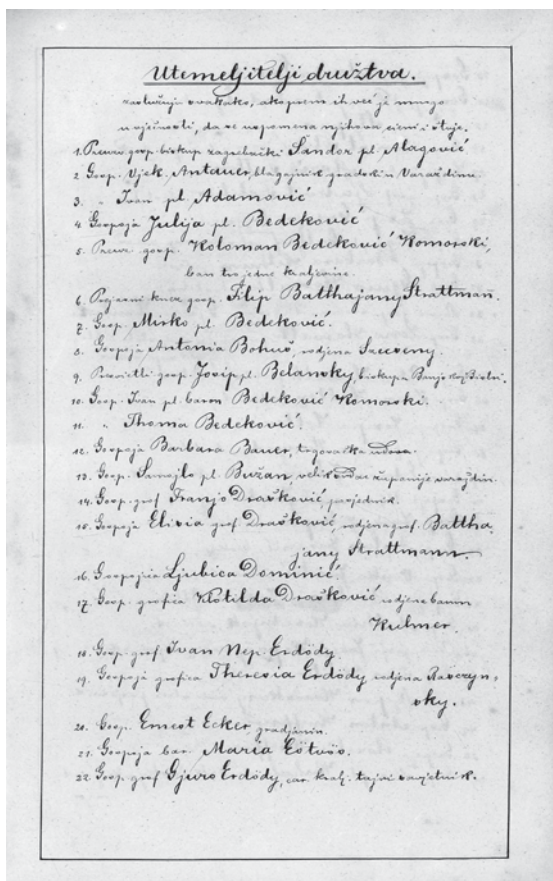 Utemeljitelji družtva.
zaslužuju svakako, ako prem ih već je mnogo
u vječnosti, da se uspomena njihova cieni i štuje.
1. Preuzv. gosp. biskup zagrebački Šandor pl. Alagović
2. Gosp. Vjek. Antauer, blagajnik gradski u Varaždinu.
3. " Ivan pl. Adamović
4. Gospoja Julija pl. Bedeković
5. Preuzv. gosp. Koloman Bedeković Komorski,
ban trojedne kraljevine.
6. knez gosp. Filip Batthajany Strattmann.
7. Gosp. Mirko pl. Bedeković.
8. Gospoja Antonia Bohuš, rodjena
9. Presvietli gosp. Josip pl. Belansky, biskup u
10. Gosp. Ivan pl. barun Bedeković Komorski.
11. " Thoma Bedeković
12. Gospoja Barbara Bauer, trgovačka udova.
13. Gosp. Samojlo pl. Bužan, veliki sudac županije varaždin.
14. Gosp. grof Franjo Drašković, posjednik.
15. Gospoja Elisia grof. Drašković, rodjena grof. Battha
jany Strattmann.
16. Gospojica Ljubica Dominić.
17. Gosp. grofica Klotilda Drašković, rodjena barun
Kulmer.
18. Gosp. grof Ivan Nep. Erdödy
19. Gospoja grofica Theresia Erdödy rodjena Raczyn-
sky.
20. Gosp. Ernest Ecker, gradjanin.
21. Gospoja bar. Maria Eötvös.
22. Gosp. grof Gjuro Erdödy, car. kralj. tajni savjetnik.